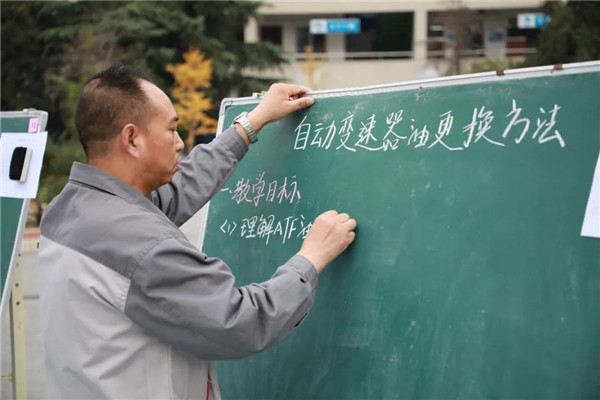 自动变速器油更换方法
一.教学目标
<1>理解ATF油